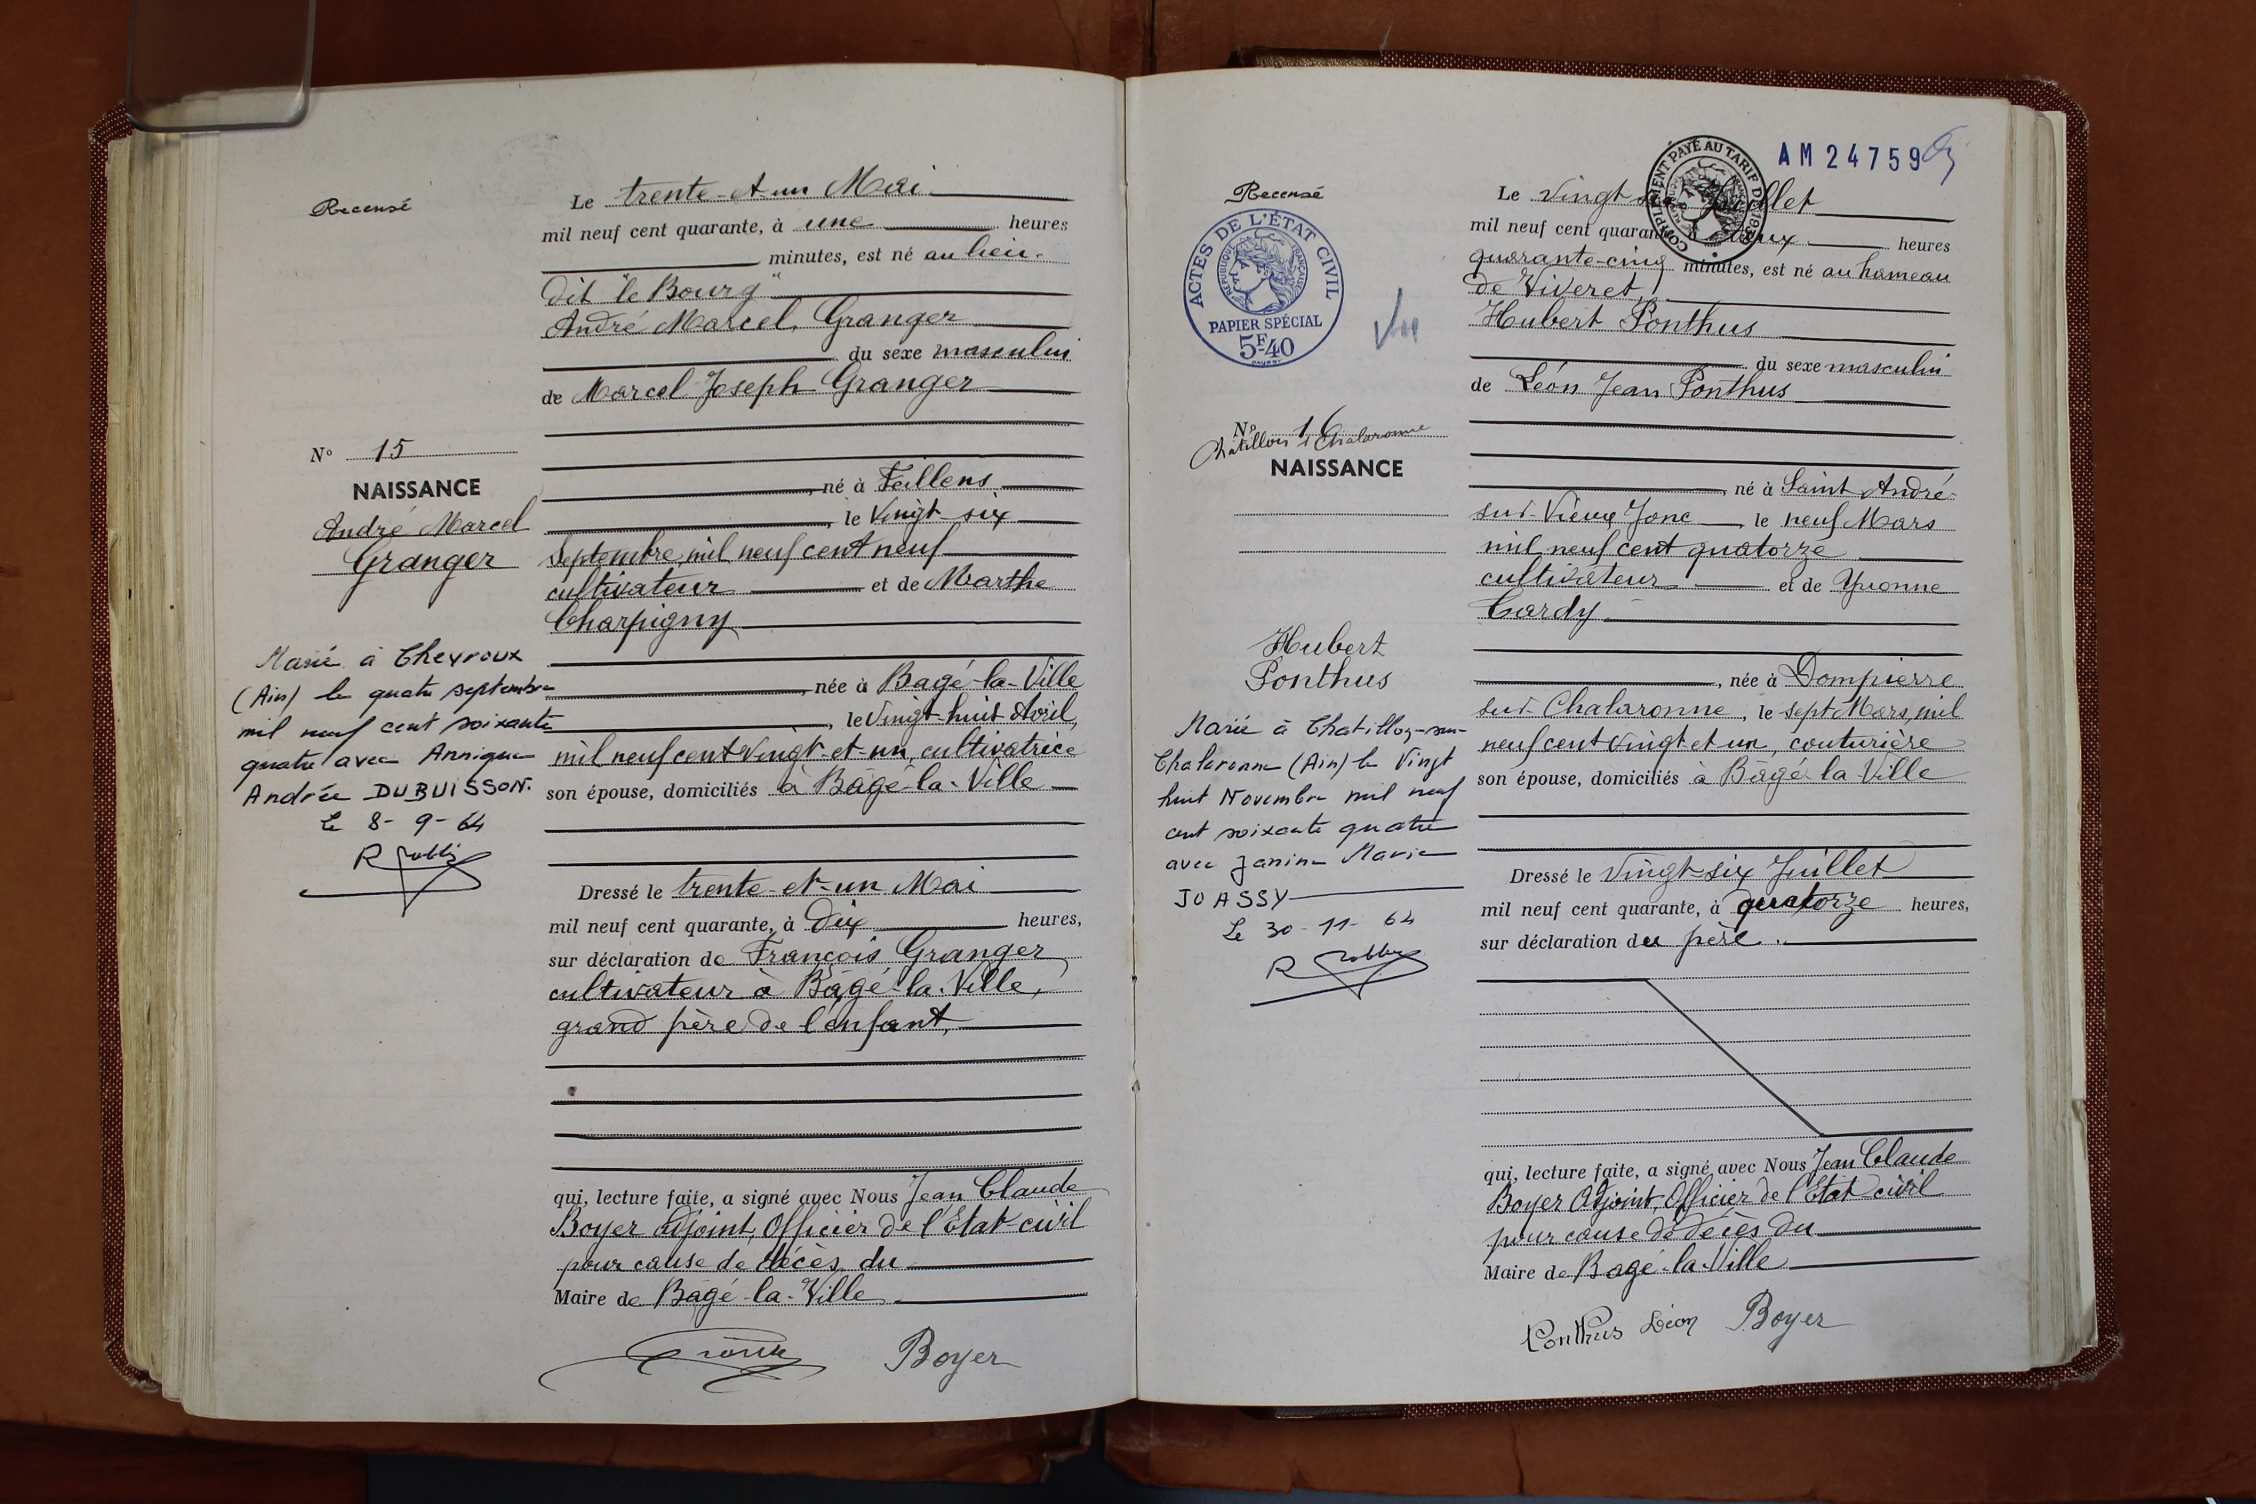 Recensé
Le trente-et-un Mai
mil neuf cent quarante, à une heures
minutes, est né au lieu-
dit "le Bourg"
André Marcel, Granger
du sexe masculin
de Marcel Joseph Granger
N° 15
NAISSANCE
André Marcel
Granger
né à Feillens
, le vingt-six
Septembre, mil neuf cent neuf
cultivateur et de Marthe
Charpigny
, née à Bagé-la-Ville
, le Vingt-huit Avril,
mil neuf cent vingt-et-un, cultivatrice
son épouse, domiciliés à Bâgé-la-Ville
Marié à Chevroux
(Ain) le quatre septembre
mil neuf cent soixante
quatre avec Annique
Andrée DUBUISSON.
Le 8-9-64
Dressé le trente-et-un Mai
mil neuf cent quarante, à dix heures,
sur déclaration de François Granger
cultivateur à Bâgé-la-Ville,
grand père de l'enfant,
qui, lecture faite, a signé avec Nous Jean Claude
Boyer adjoint, Officier de l'Etat-civil
pour cause de décès du
Maire de Bâgé-la-Ville
Boyer
AM 24759
COMPLEMENT PAYÉ AU TARIF DE 19
Recensé
ACTES DE L'ÉTAT CIVIL
RÉPUBLIQUE FRANÇAISE
PAPIER SPÉCIAL
5F40
Le vingt-six Juillet
mil neuf cent quarante, à deux heures
quarante-cinq minutes, est né au hameau
de Viveret,
Hubert Ponthus
du sexe masculin
de Léon Jean Ponthus
N° 16
Châtillon s/Chalaronne
NAISSANCE
né à Saint André-
sur-Vieux Jonc, le neuf Mars
mil neuf cent quatorze
cultivateur et de Yvonne
Cardy
, née à Dompierre
sur-Chalaronne, le sept Mars, mil
neuf cent vingt et un, couturière
son épouse, domiciliés à Bâgé la Ville
Hubert
Ponthus
Marié à Chatillon-sur-
Chalaronne (Ain) le Vingt
huit Novembre mil neuf
cent soixante quatre
avec Janine Marie
JOASSY
Le 30-11-64
Dressé le vingt-six Juillet
mil neuf cent quarante, à quatorze heures,
sur déclaration du père.
qui, lecture faite, a signé avec Nous Jean Claude
Boyer Adjoint, Officier de l'Etat-civil
pour cause de décès du
Maire de Bagé-la-Ville
Ponthus Léon Boyer